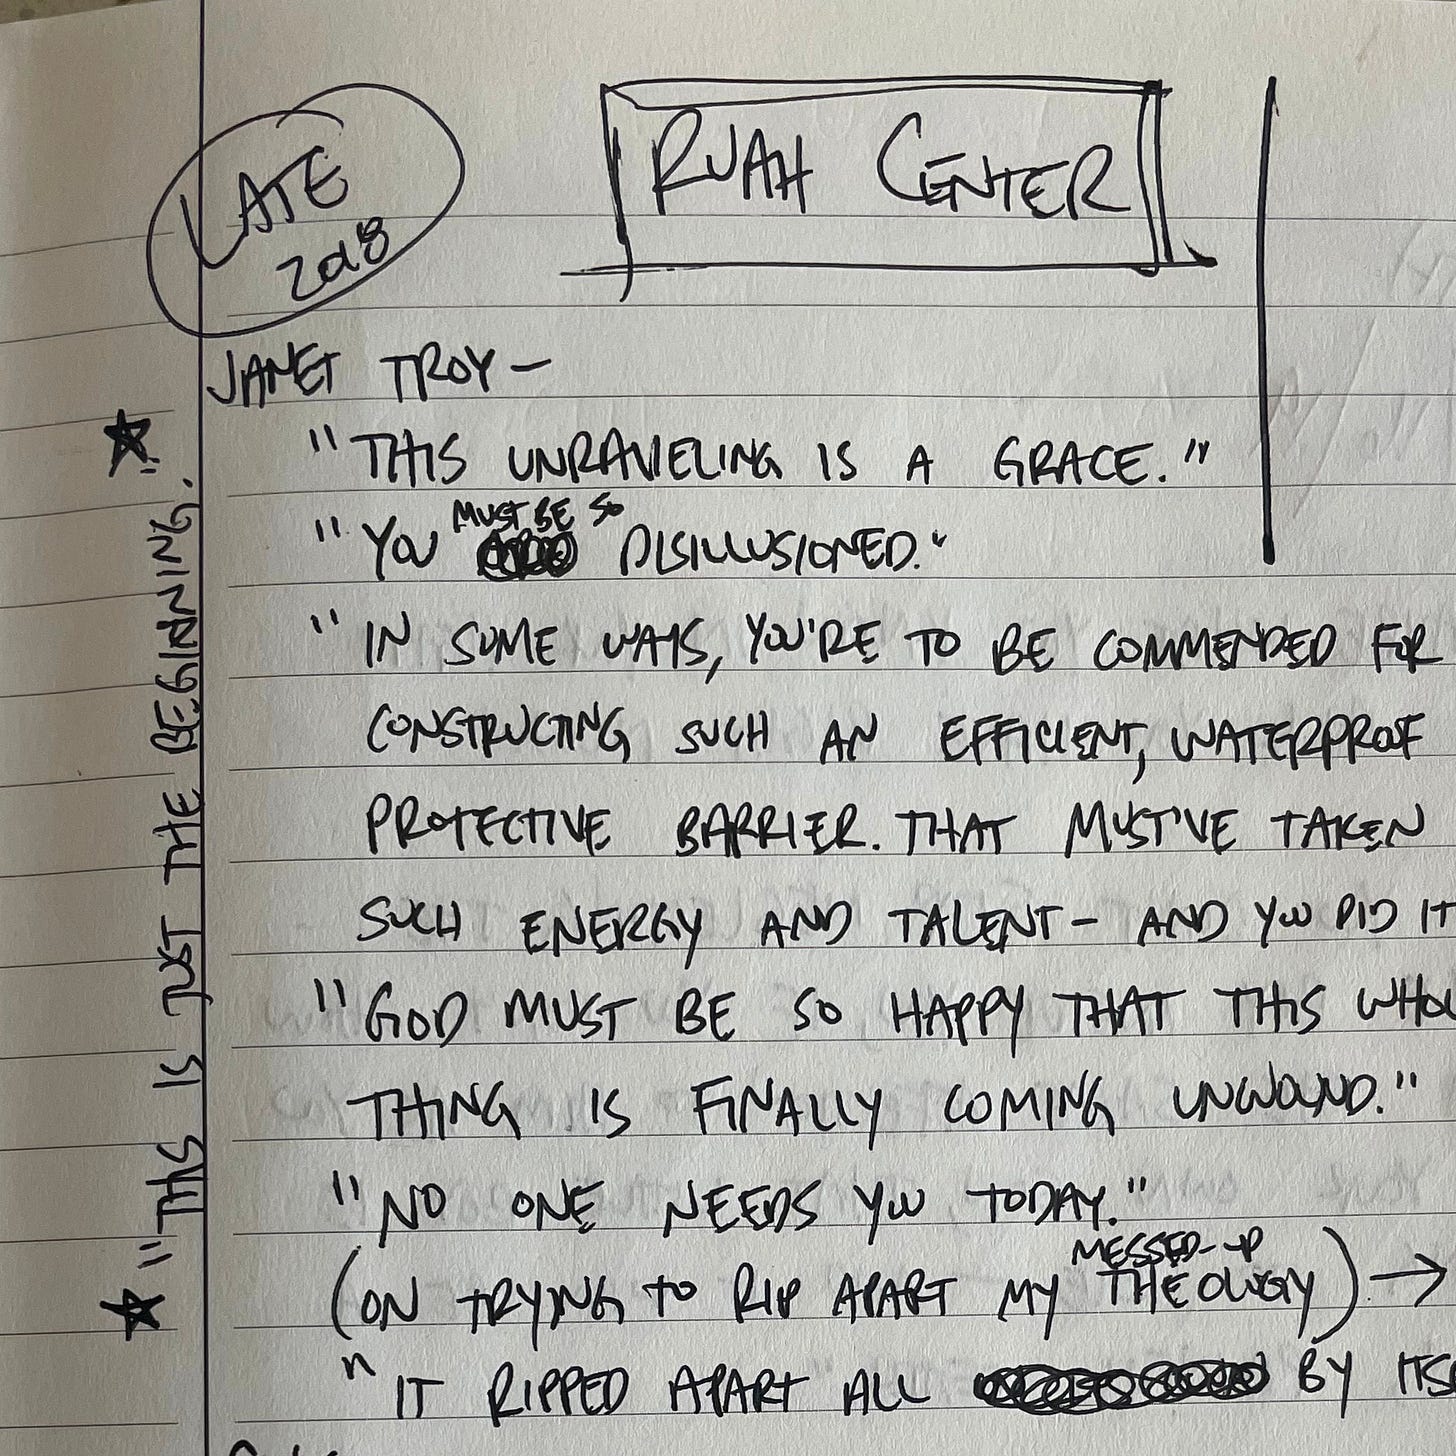 LATE
2018
RUAH CENTER
JANET TROY —
"THIS UNRAVELING IS A GRACE."
MUST BE SO
"YOU DISILLUSIONED."
"IN SOME WAYS, YOU'RE TO BE COMMENDED FOR
CONSTRUCTING SUCH AN EFFICIENT, WATERPROOF
PROTECTIVE BARRIER. THAT MUST'VE TAKEN
SUCH ENERGY AND TALENT — AND YOU DID IT
"GOD MUST BE SO HAPPY THAT THIS WHOL
THING IS FINALLY COMING UNWOUND."
"NO ONE NEEDS YOU TODAY."
MESSED-UP
(ON TRYING TO RIP APART MY THEOLOGY) →
"IT RIPPED APART ALL BY ITS
"THIS IS JUST THE BEGINNING."